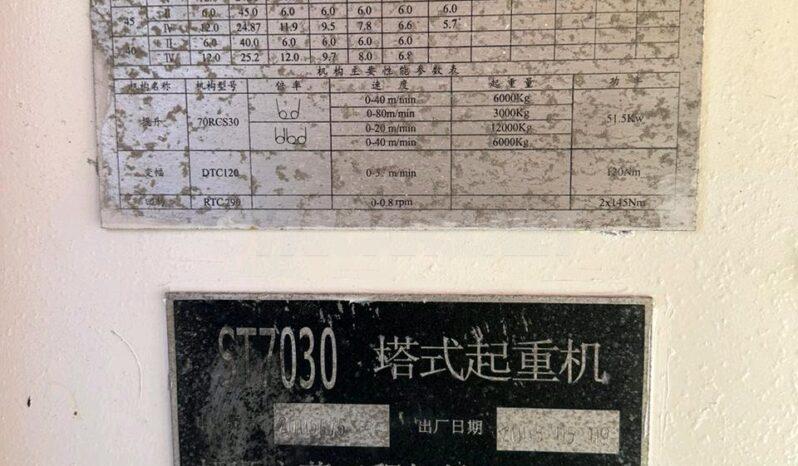 II 6.0 45.0 6.0 6.0 6.0 6.0 6.0
45 IV 12.0 24.87 11.9 9.5 7.8 6.6 5.7
II 6.0 40.0 6.0 6.0 6.0 6.0
40 IV 12.0 25.2 12.0 9.7 8.0 6.8
机构主要性能参数表
机构名称 机构型号 倍率 速度 起重量 功率
0-40 m/min 6000Kg
0-80m/min 3000Kg
提升 70RCS30 51.5Kw
0-20 m/min 12000Kg
0-40 m/min 6000Kg
变幅 DTC120 m/min 120Nm
RTC290 0-0.8 rpm 2x145Nm
ST7030 塔式起重机
出厂日期